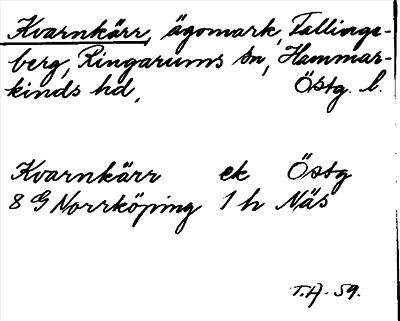 Kvarnkärr, ägomark, Fallings-
berg, Ringarums sn, Hammar-
kinds hd, Östg. l.
Kvarnkärr ek Östg
8 G Norrköping 1 h Näs
T.H. 59.